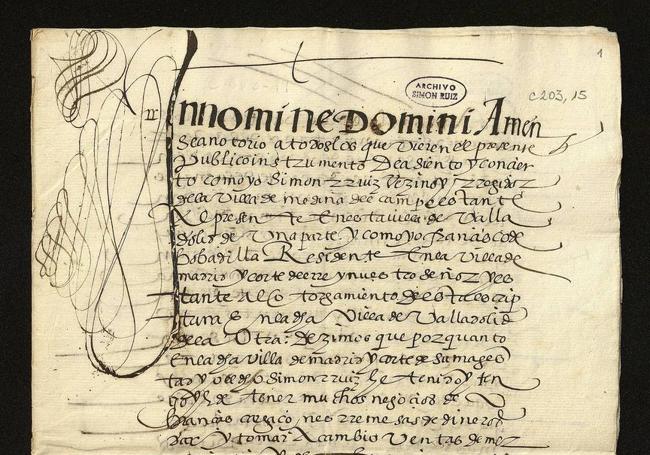 1
ARCHIVO
SIMON RUIZ
C 203, 15
In nomine Domini Amen
Sea notorio a todos los que vieren el presente
publico instrumento De asiento y concier
to como yo simon rruiz vezino y rregidor
de la Villa de medina del campo estante
Al presente En esta villa de Valla
dolid de Una parte. y como yo francisco de
bobadilla Residente En la villa de
madrid y corte del rrey nuestro señor y es
tante Al otorgamiento de esta escrip
tura En la dha Villa de Valladolid
de la Otra: Dezimos que por quanto
En la dha villa de madrid y corte de su mages
tad yo el dho simon rruiz he tenido y ten
go y he de tener muchos negocios de
cobranças rremesas de dineros
dar y tomar A cambio Ventas de